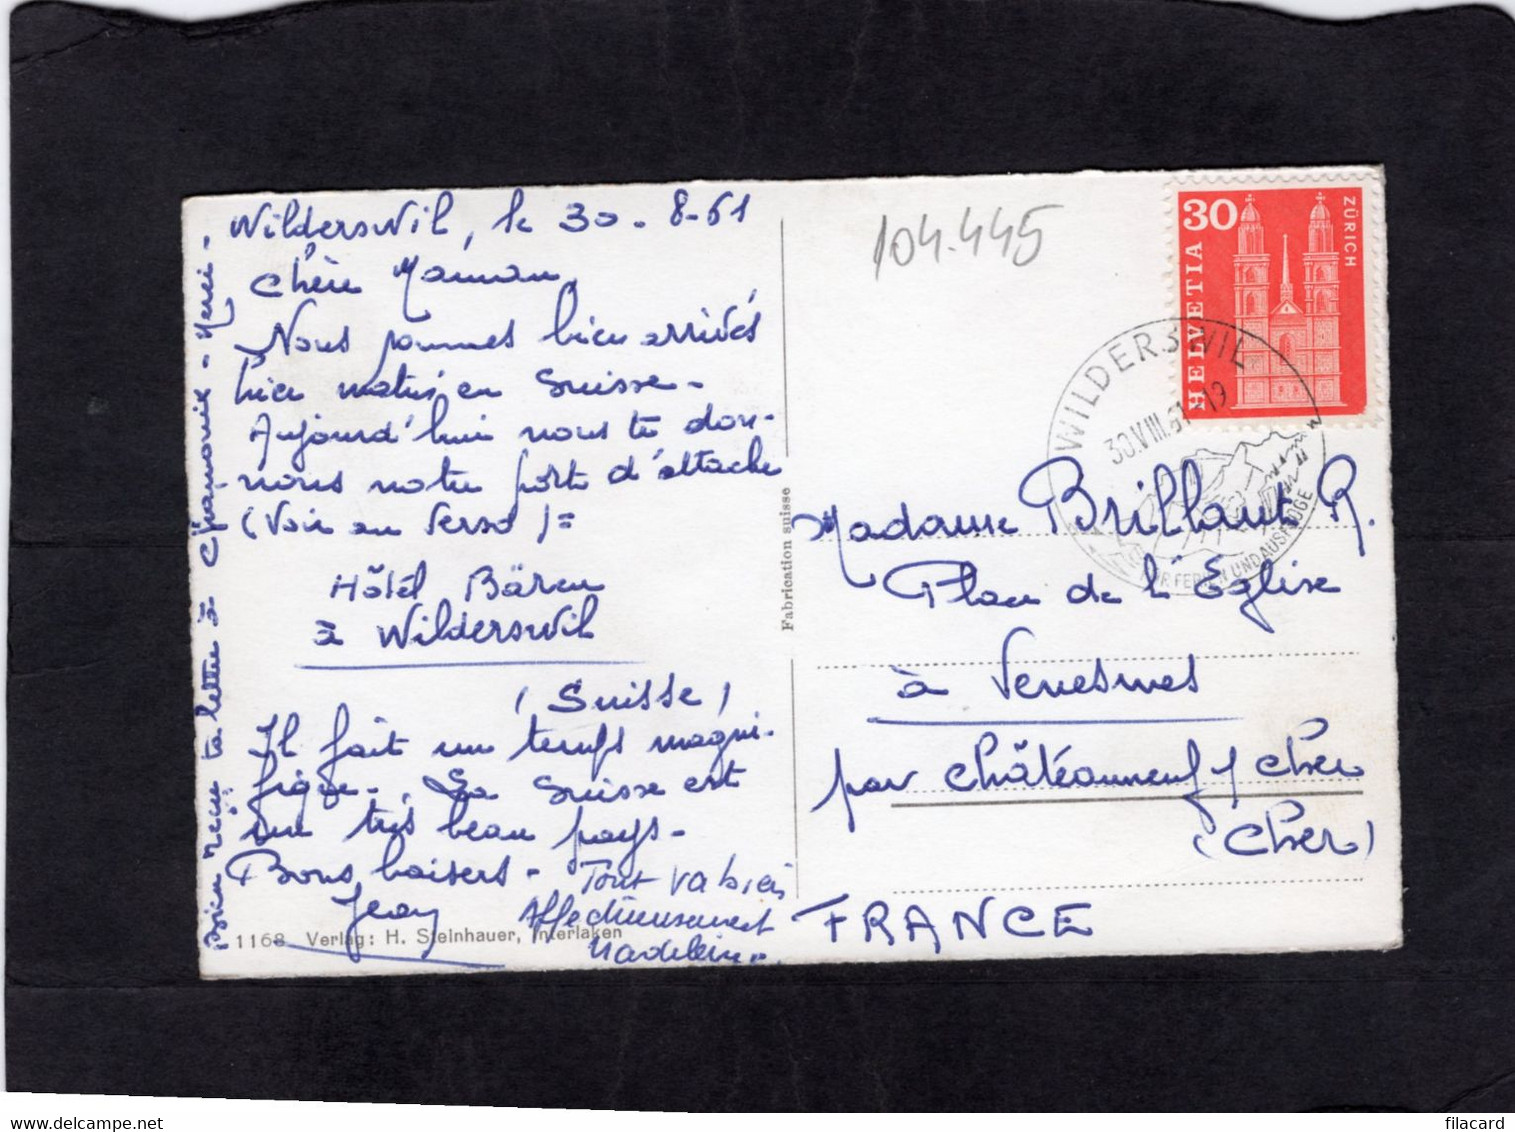 Wilderswil, le 30-8-61
Chère Maman,
Nous sommes bien arrivés
hier matin en Suisse-
Aujourd'hui nous te don-
nons notre port d'attache
(Voir au verso)=
Hôtel Bären
à Wilderswil
(Suisse)
Il fait un temps magni-
fique. La Suisse est
un très beau pays-
Bons baisers-
Jean
Tout va bien
Affectueusement
Madeleine
Bien reçu ta lettre à Chamonix - Merci -
1168 Verlag: H. Steinhauer, Interlaken
Fabrication suisse
104.445
30
HELVETIA
ZÜRICH
WILDERSWIL
30.VIII.61 19
FÜR FERIEN UND AUSFLÜGE
Madame Brillant R.
Place de l'Eglise
à Venesmes
par Châteauneuf s/ Cher
(Cher)
FRANCE
www.delcampe.net
filacard